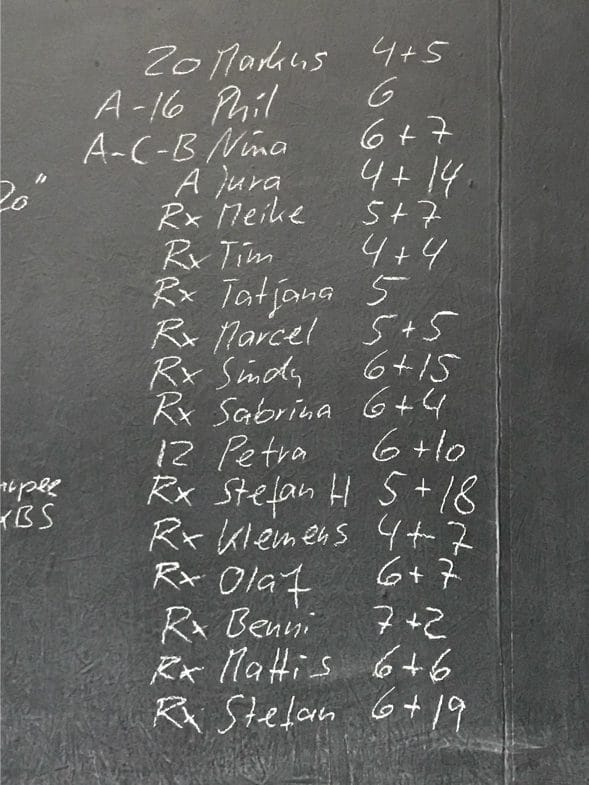 20 Markus 4+5
A-16 Phil 6
A-C-B Nina 6+7
A Jura 4+14
20"
Rx Meike 5+7
Rx Tim 4+4
Rx Tatjana 5
Rx Marcel 5+5
Rx Sindy 6+15
Rx Sabrina 6+4
12 Petra 6+10
Rx Stefan H 5+18
BS
Rx Klemens 4+7
Rx Olaf 6+7
Rx Benni 7+2
Rx Mattis 6+6
Rx Stefan 6+19